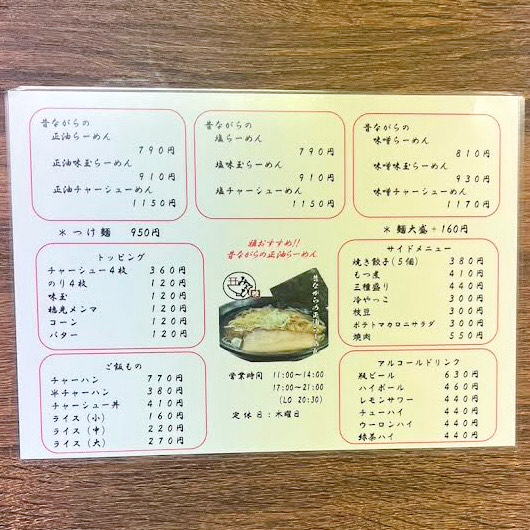 昔ながらの
正油らーめん
790円
正油味玉らーめん
910円
正油チャーシューめん
1150円
昔ながらの
塩らーめん
790円
塩味玉らーめん
910円
塩チャーシューめん
1150円
昔ながらの
味噌らーめん
810円
味噌味玉らーめん
930円
味噌チャーシューめん
1170円
＊つけ麺 950円
＊麺大盛＋160円
トッピング
チャーシュー4枚 360円
のり4枚 120円
味玉 120円
穂先メンマ 120円
コーン 120円
バター 120円
ご飯もの
チャーハン 770円
半チャーハン 380円
チャーシュー丼 410円
ライス（小） 160円
ライス（中） 220円
ライス（大） 270円
おすすめ!!
昔ながらの正油らーめん
営業時間 11:00〜14:00
17:00〜21:00
(LO 20:30)
定休日：木曜日
サイドメニュー
焼き餃子（5個） 380円
もつ煮 410円
三種盛り 440円
冷やっこ 300円
枝豆 300円
ポテトマカロニサラダ 300円
焼肉 550円
アルコールドリンク
瓶ビール 630円
ハイボール 460円
レモンサワー 440円
チューハイ 440円
ウーロンハイ 440円
緑茶ハイ 440円